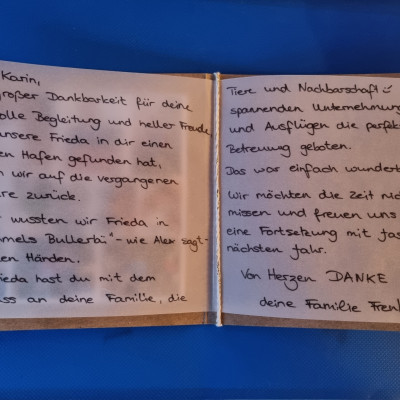 Karin,
großer Dankbarkeit für deine
olle Begleitung und heller Freude
unsere Frieda in dir einen
en Hafen gefunden hat,
n wir auf die vergangenen
re zurück.
wussten wir Frieda in
mmels Bullerbü" - wie Alex sagt -
en Händen.
ieda hast du mit dem
ss an deine Familie, die
Tiere und Nachbarschaft
spannenden Unternehmung
und Ausflügen die perfek
Betreuung geboten.
Das war einfach wunderb
Wir möchten die Zeit nic
missen und freuen uns
eine Fortsetzung mit
nächsten Jahr.
Von Herzen DANKE
deine Familie Fren